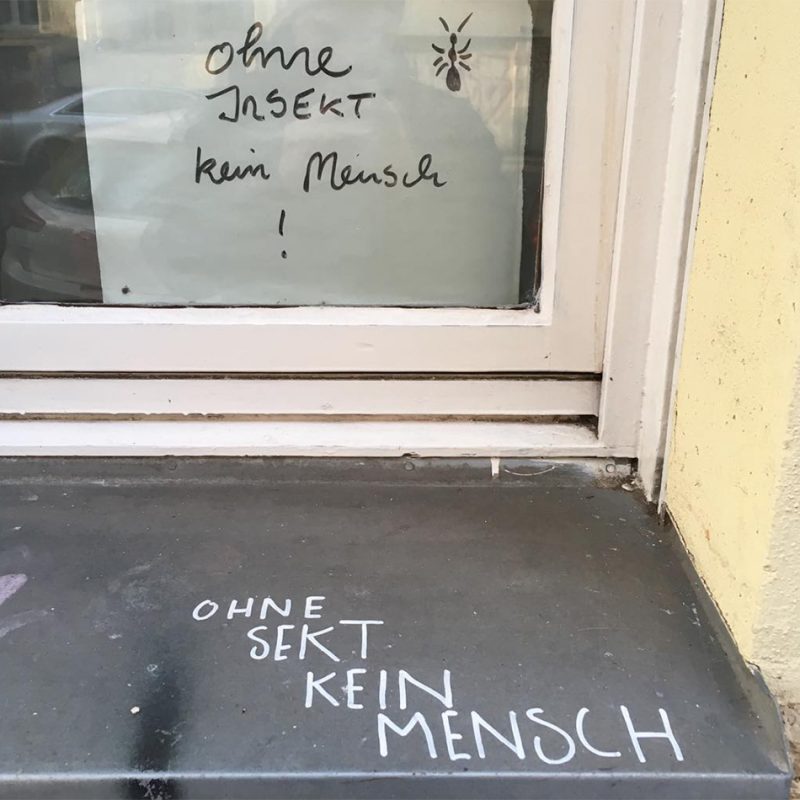 ohne
INSEKT
kein Mensch
!
OHNE
SEKT
KEIN
MENSCH